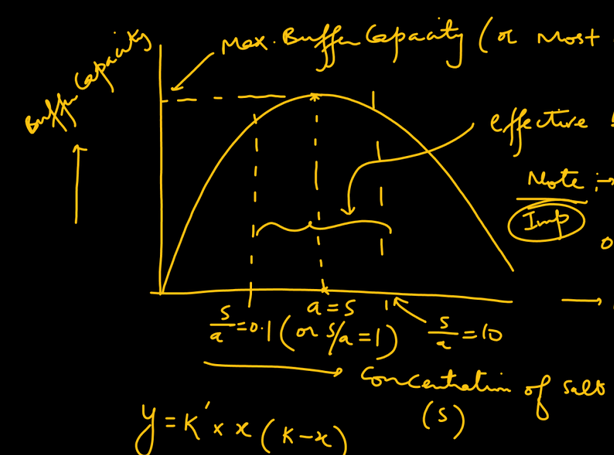 Max. Buffer Capacity (or Most
Buffer Capacity
effective
Note :→
Imp
a = s
s/a = 0.1 (or s/a = 1) s/a = 10
Concentration of salt
(s)
y = K' × x (K-x)